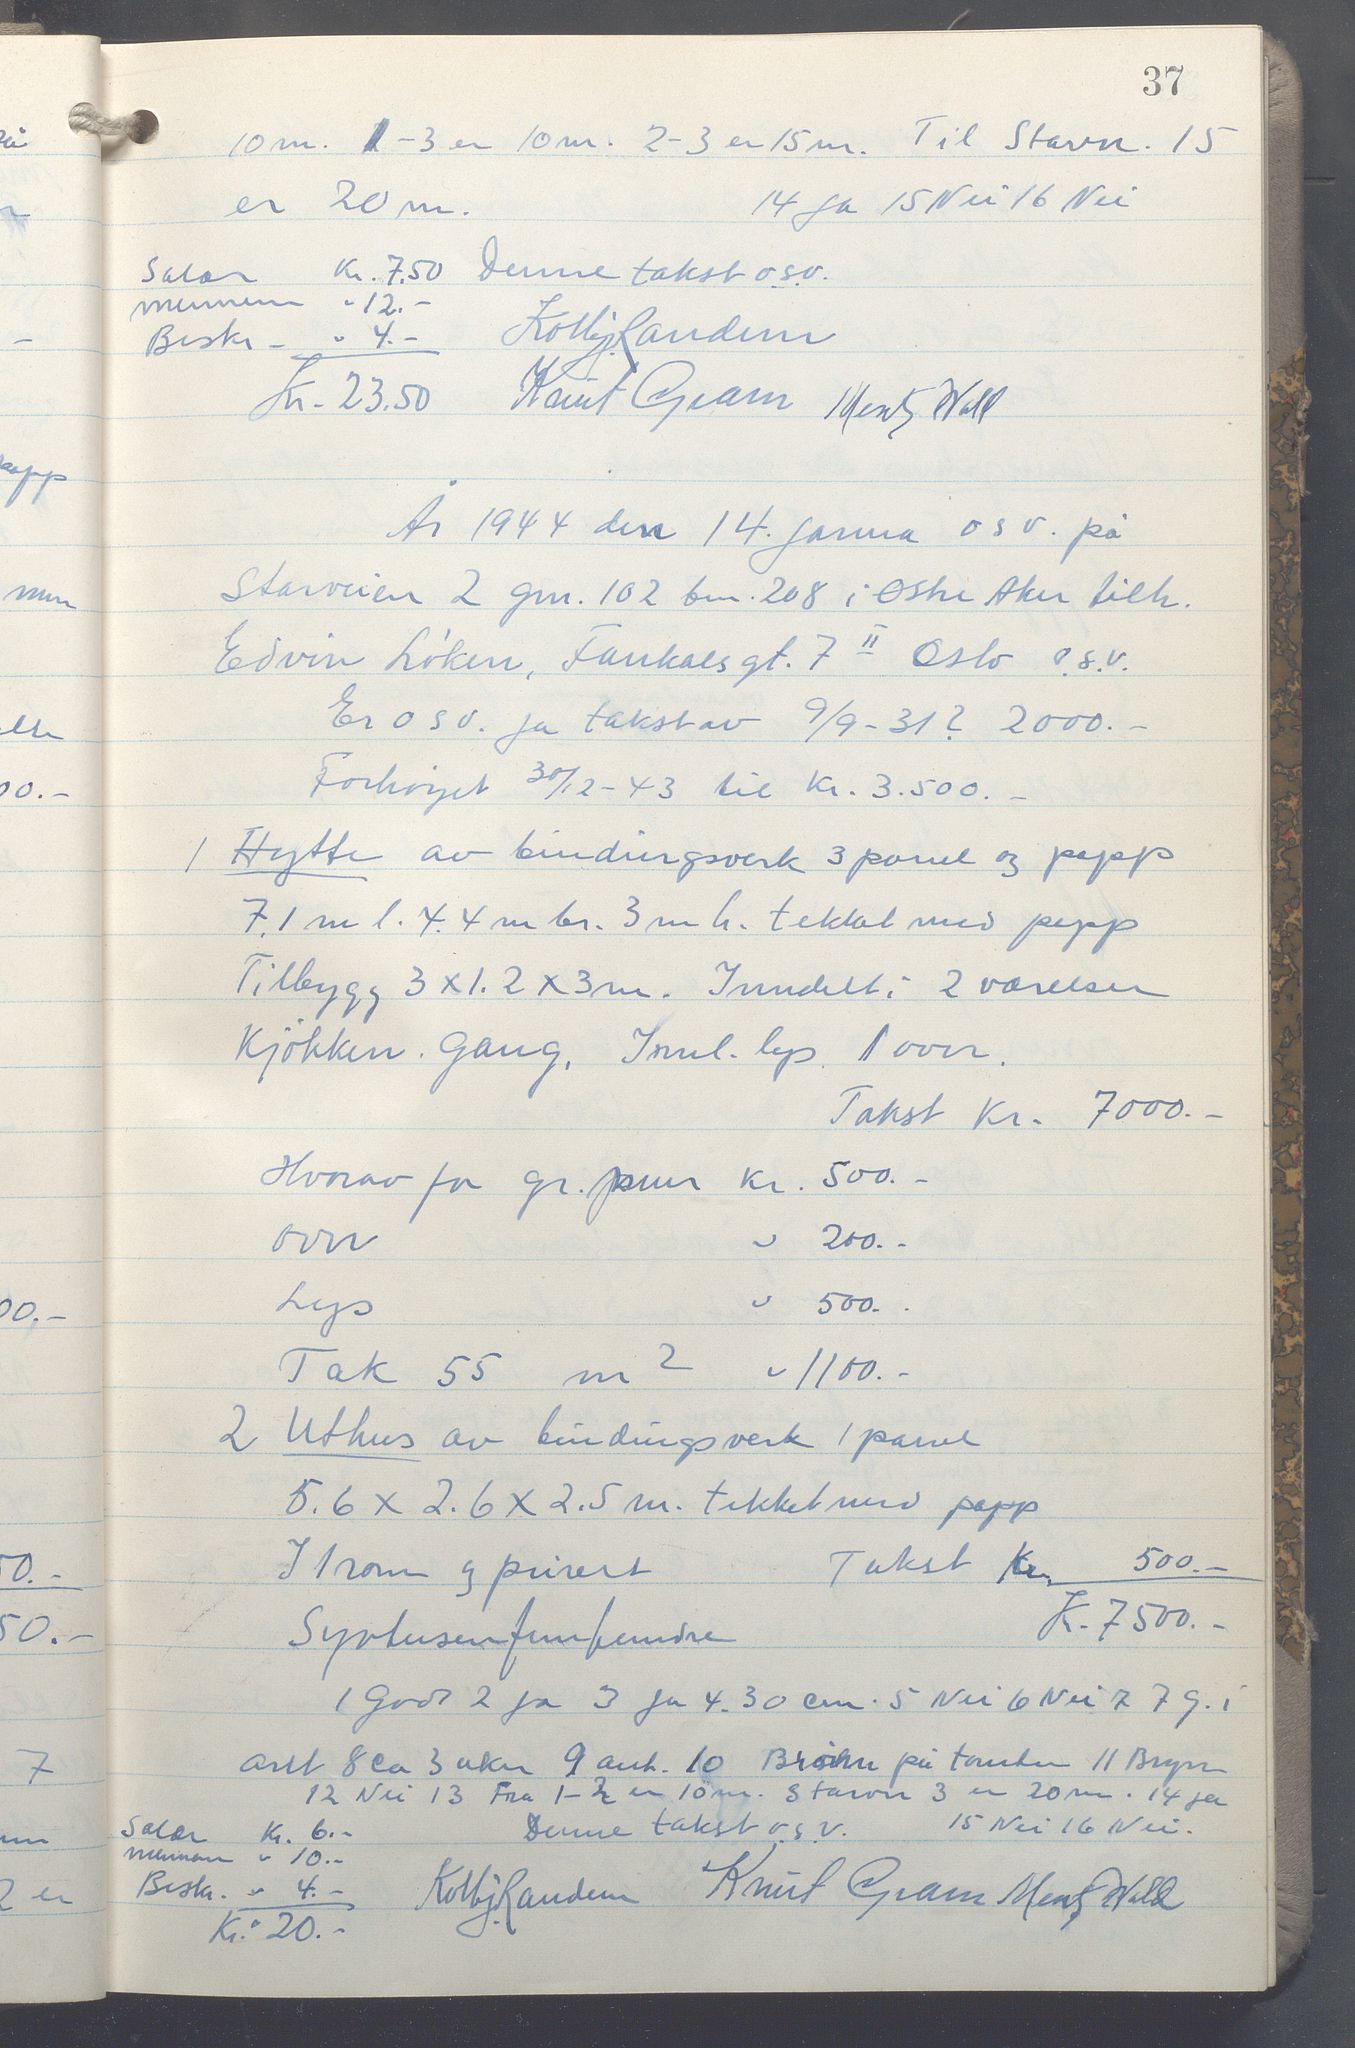 37
10 m. 1-3 er 10 m. 2-3 er 15 m. Til Starv. 15
er 20 m. 14 ja 15 Nei 16 Nei
Salær Kr. 7,50 Denne takst o.s.v.
mennene " 12.-
Beskr - " 4.- Kolbj. Randem
Kr. 23.50 Knut Gram Mentz Wall
År 1944 den 14. januar o s v. på
Starveien 2 gnr. 102 bnr. 208 i Østre Aker tilh.
Edvin Löken, gt. 7 II Oslo o.s.v.
Er o s v. ja takst av 9/9-31? 2000.-
Forhöyet 30/12-43 til kr. 3.500.-
1 Hytte av bindingsverk 3 panel og papp
7,1 m l. 4.4 m br. 3 m h. tekket med papp
Tilbygg 3 x 1.2 x 3 m. Inndelt i 2 værelser
Kjökken. Gang. Innl. lys. 1 ovn.
Takst Kr. 7000.-
Hvorav for gr. mur kr. 500.-
ovn " 200.-
Lys " 500.-
Tak 55 m2 " 1100.-
2 Uthus av bindingsverk 1 panel
5.6 x 2.6 x 2.5 m. tekket med papp
I 1 rom og privet Takst Kr. 500.-
Kr. 7500.-
1 Godt 2 ja 3 ja 4. 30 cm. 5 Nei 6 Nei 7 7 g. i
året 8 Ca 3 uker 9 ant. 10 Brönn på tomten 11 Bryn
12 Nei 13 Fra 1-2 er 10 m. Starvn 3 er 20 m. 14 ja
Salær Kr. 6.- Denne takst o.s.v. 15 Nei 16 Nei.
mennene " 10.-
Beskr. " 4.- Kolbj. Randem Knut Gram Mentz Wall
Kr. 20.-